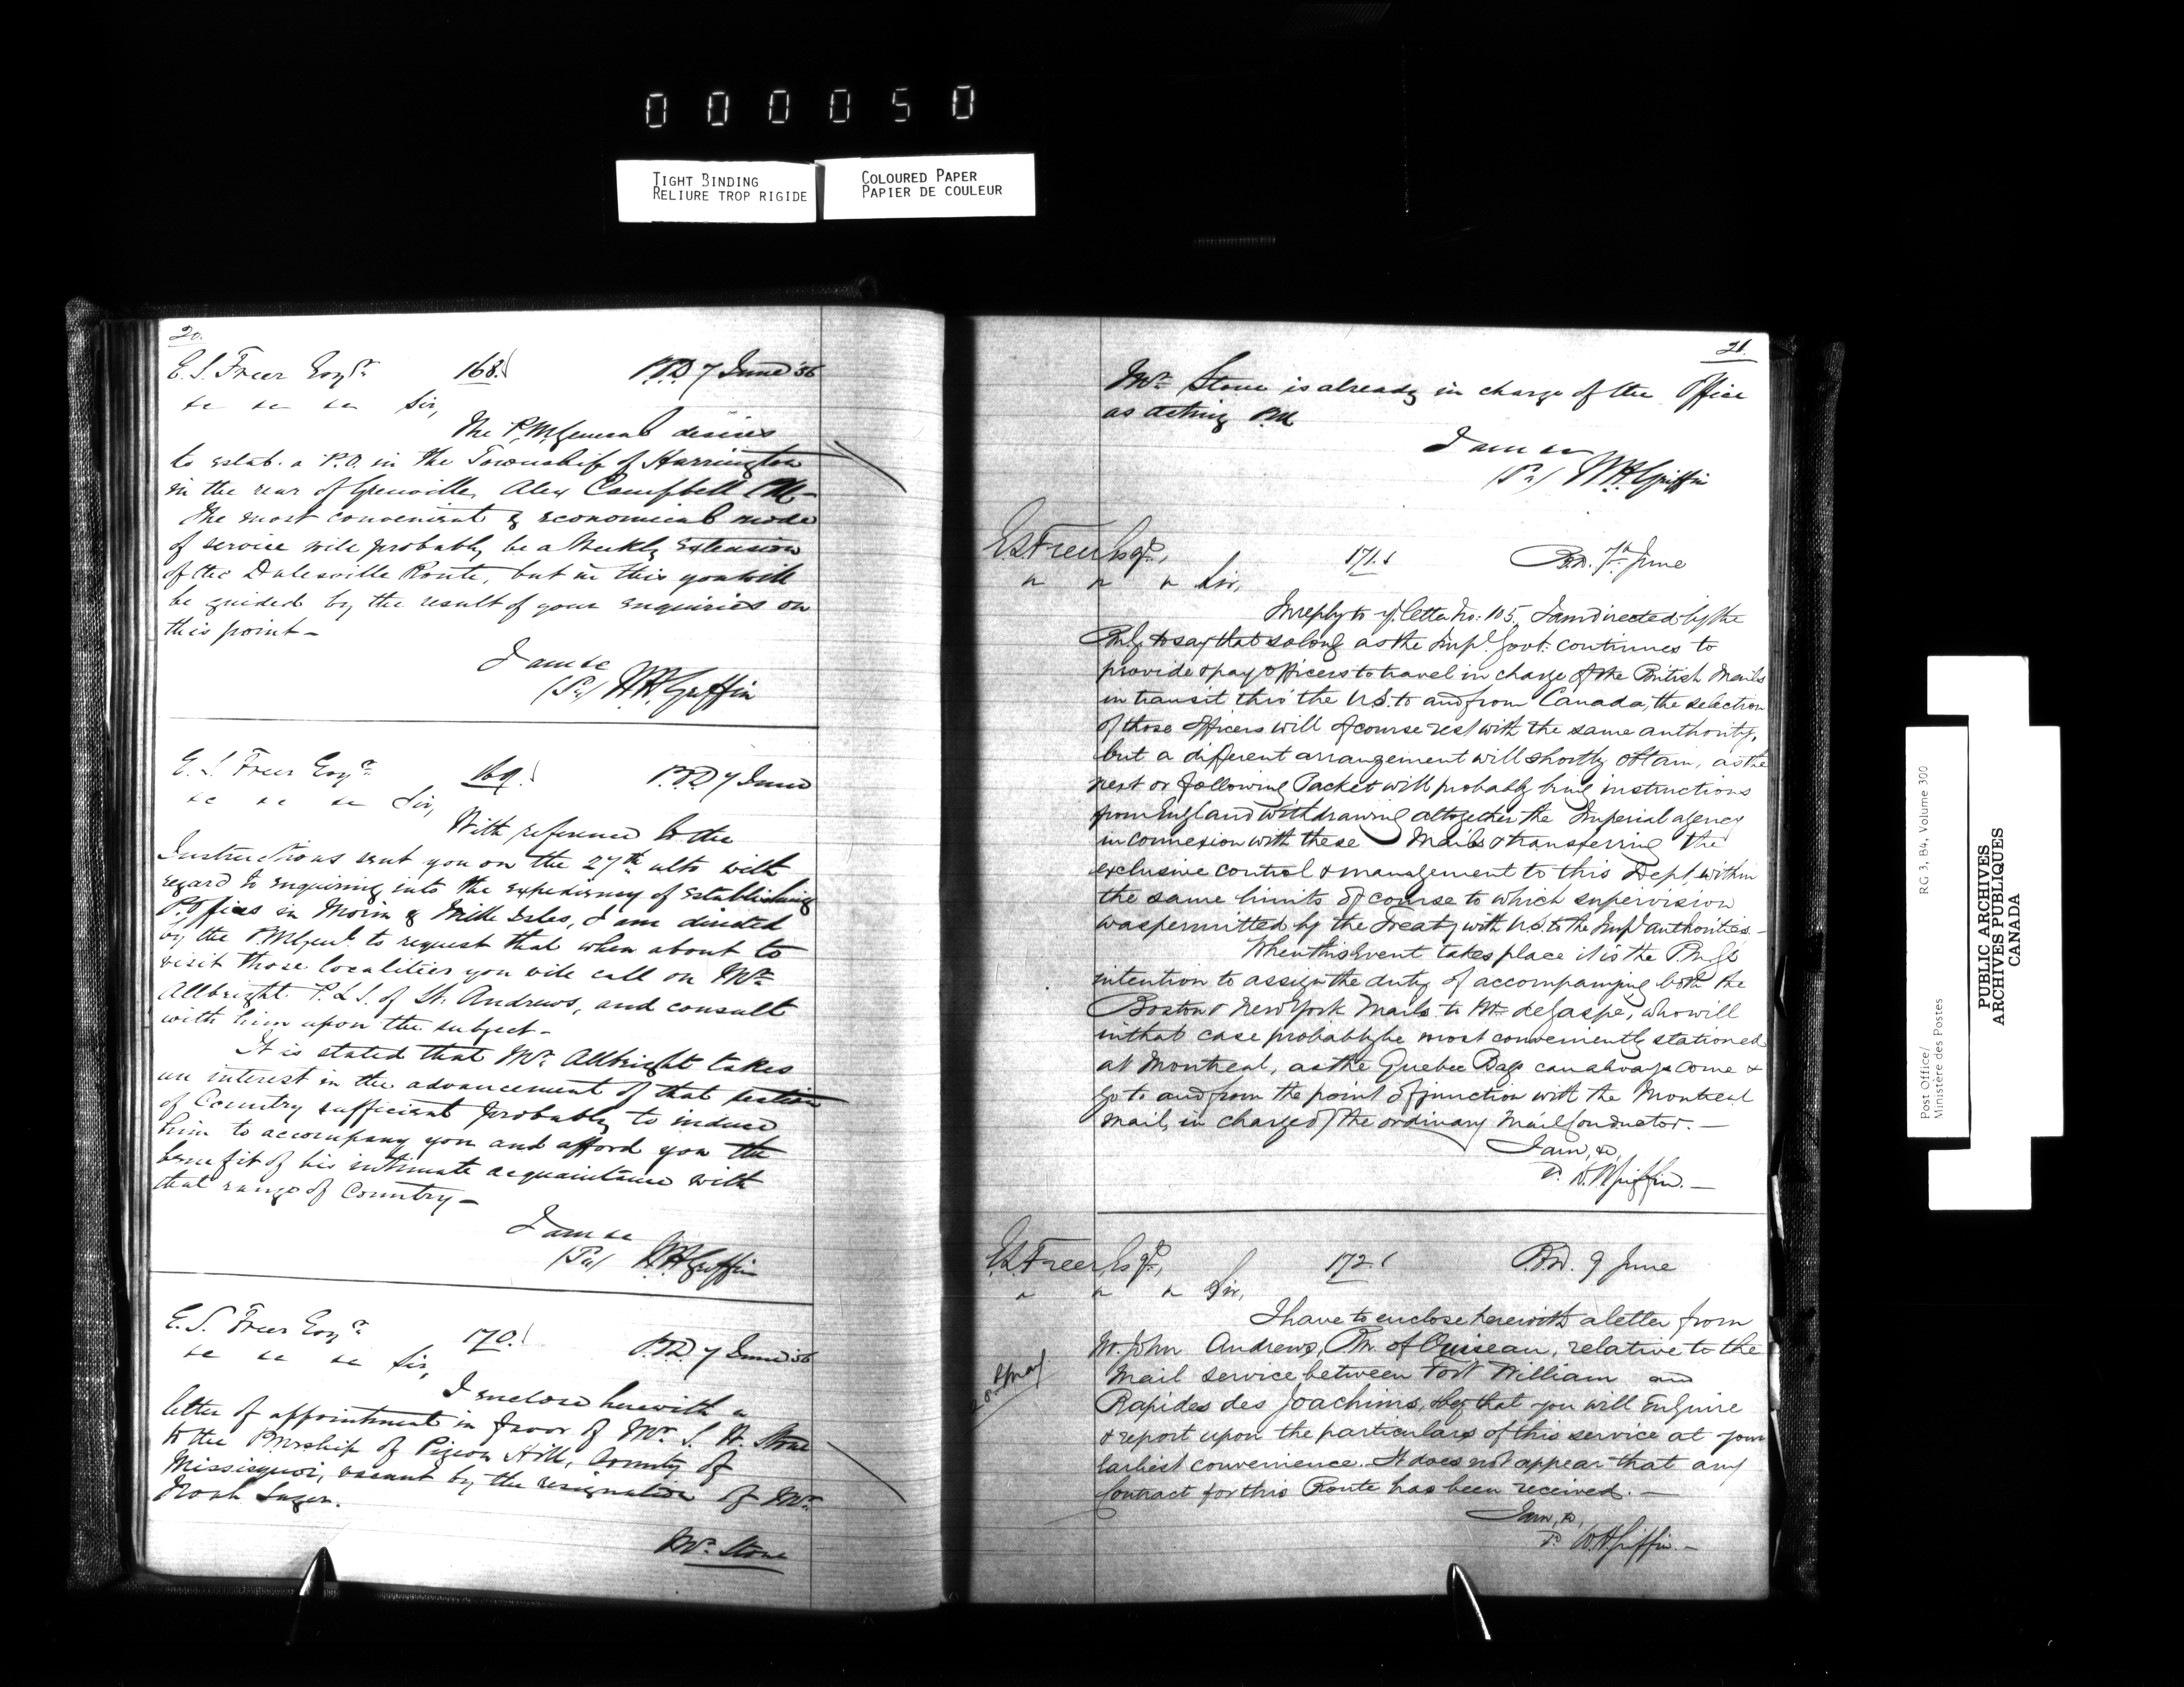 000050
TIGHT BINDING
RELIURE TROP RIGIDE
COLOURED PAPER
PAPIER DE COULEUR
20.
E. S. Freer Esqre 168. P.O.D. 7 June '56
&c &c &c Sir,
The P.M. General desires
to estab. a P.O. in the Township of Harrington
in the rear of Grenville, Alex Campbell P.M.-
The most convenient & economical mode
of service will probably be a Weekly Extension
of the Dalesville Route, but in this you will
be guided by the result of your enquiries on
this point-
I am &c
W.H. Griffin
E. S. Freer Esqre 169. P.O.D. 7 June
&c &c &c Sir,
With reference to the
Instructions sent you on the 27th ulto with
regard to enquiring into the expediency of establishing
P. Offices in Morin & Mille Isles, I am directed
by the P.M. Genl. to request that when about to
visit those localities you will call on Mr
Allbright. P.L.S. of St. Andrews, and consult
with him upon the subject-
It is stated that Mr. Allbright takes
an interest in the advancement of that section
of Country sufficient probably to induce
him to accompany you and afford you the
benefit of his intimate acquaintance with
that range of Country-
I am &c
W.H. Griffin
E. S. Freer Esqre 170. P.O.D. 7 June '56
&c &c &c Sir,
I enclose herewith a
letter of appointment in favor of Mr. S. H. Stone
to the P.Mrship of Pigeon Hill, County of
Missisquoi, vacant by the resignation of Mr.
Noah Sager.
Mr. Stone
21.
Mr. Stone is already in charge of the Office
as acting P.M.
I am &c
W.H. Griffin
E.S. Freer Esqr, 171. P.O.D. 7th June
" " " Sir,
In reply to yr. letter No: 105, I am directed by the
P.M.G. to say that so long as the Impl. Govt: continues to
provide & pay officers to travel in charge of the British Mails
in transit thro' the U.S. to and from Canada, the selection
of those Officers will of course rest with the same authority,
but a different arrangement will shortly obtain, as the
next or following Packet will probably bring instructions
from England withdrawing altogether the Imperial agency
in connexion with these Mails & transferring the
exclusive control & management to this Dept, within
the same limits of course to which supervision
was permitted by the Treaty with U.S. to the Impl authorities.-
When this Event takes place it is the P.M.G's
intention to assign the duty of accompanying both the
Boston & New York Mails to Mr. deGaspé, who will
in that case probably be most conveniently stationed
at Montreal, as the Quebec Bags can always come &
go to and from the point of junction with the Montreal
mail, in charge of the ordinary Mail Conductor.-
I am, &c,
W.H. Griffin.-
E.S. Freer, Esqr, 172. P.O.D. 9 June
" " " Sir,
I have to enclose herewith a letter from
28 May
Mr. John Andrews, P.M. of , relative to the
Mail service between Fort William and
Rapides des Joachims, & beg that you will Enquire
& report upon the particulars of this service at your
Earliest convenience. It does not appear that any
Contract for this Route has been received.-
I am, &c,
W.H. Griffin.-
Post Office/
Ministère des Postes
RG 3, B4, Volume 300
PUBLIC ARCHIVES
ARCHIVES PUBLIQUES
CANADA